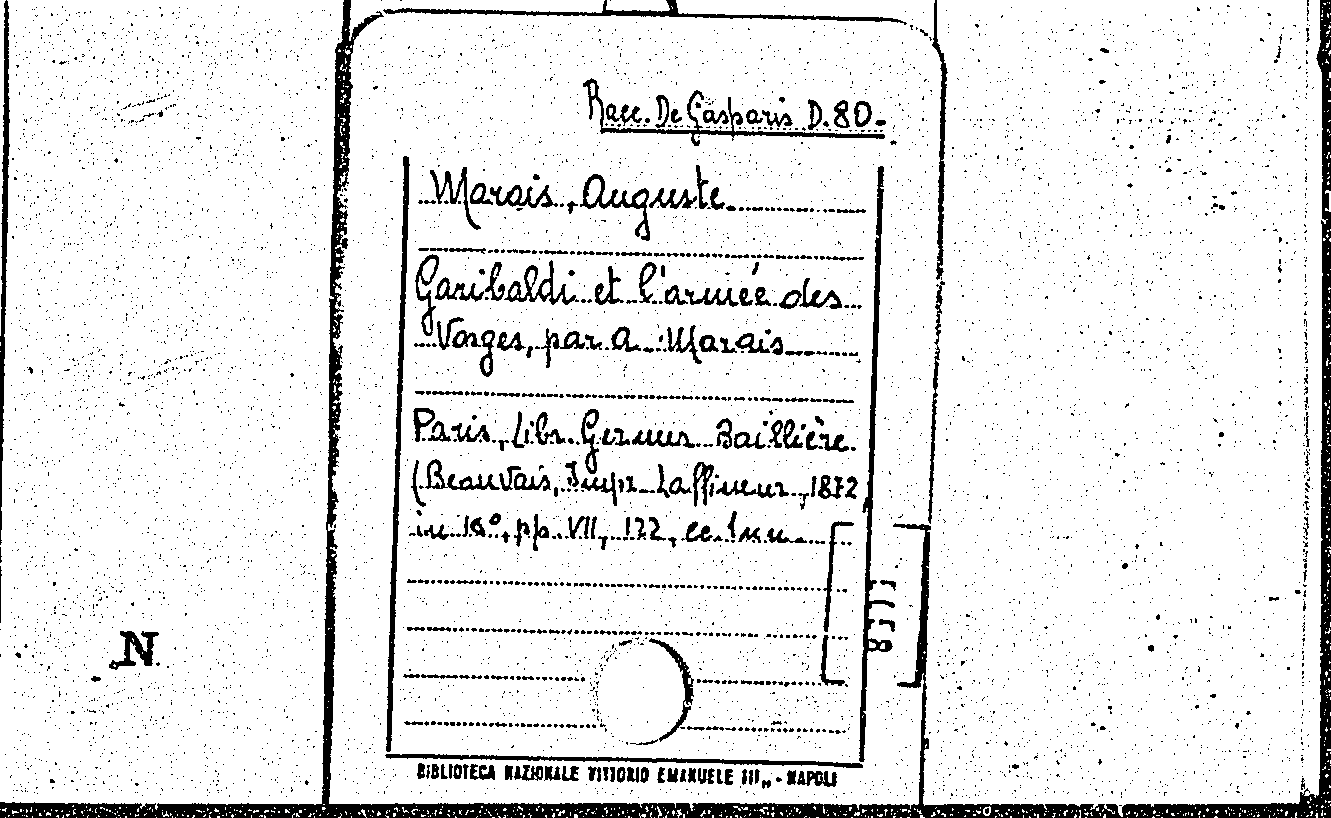 Racc. De Gasparis D. 80.
Marais, Auguste
Garibaldi et l'armée des
Vosges, par A. Marais
Paris, Libr. Germer Baillière
(Beauvais, Impr. Laffineur, 1872,
in 18°, pp. VII, 122, cc.
N
BIBLIOTECA NAZIONALE VITTORIO EMANUELE III„ - NAPOLI